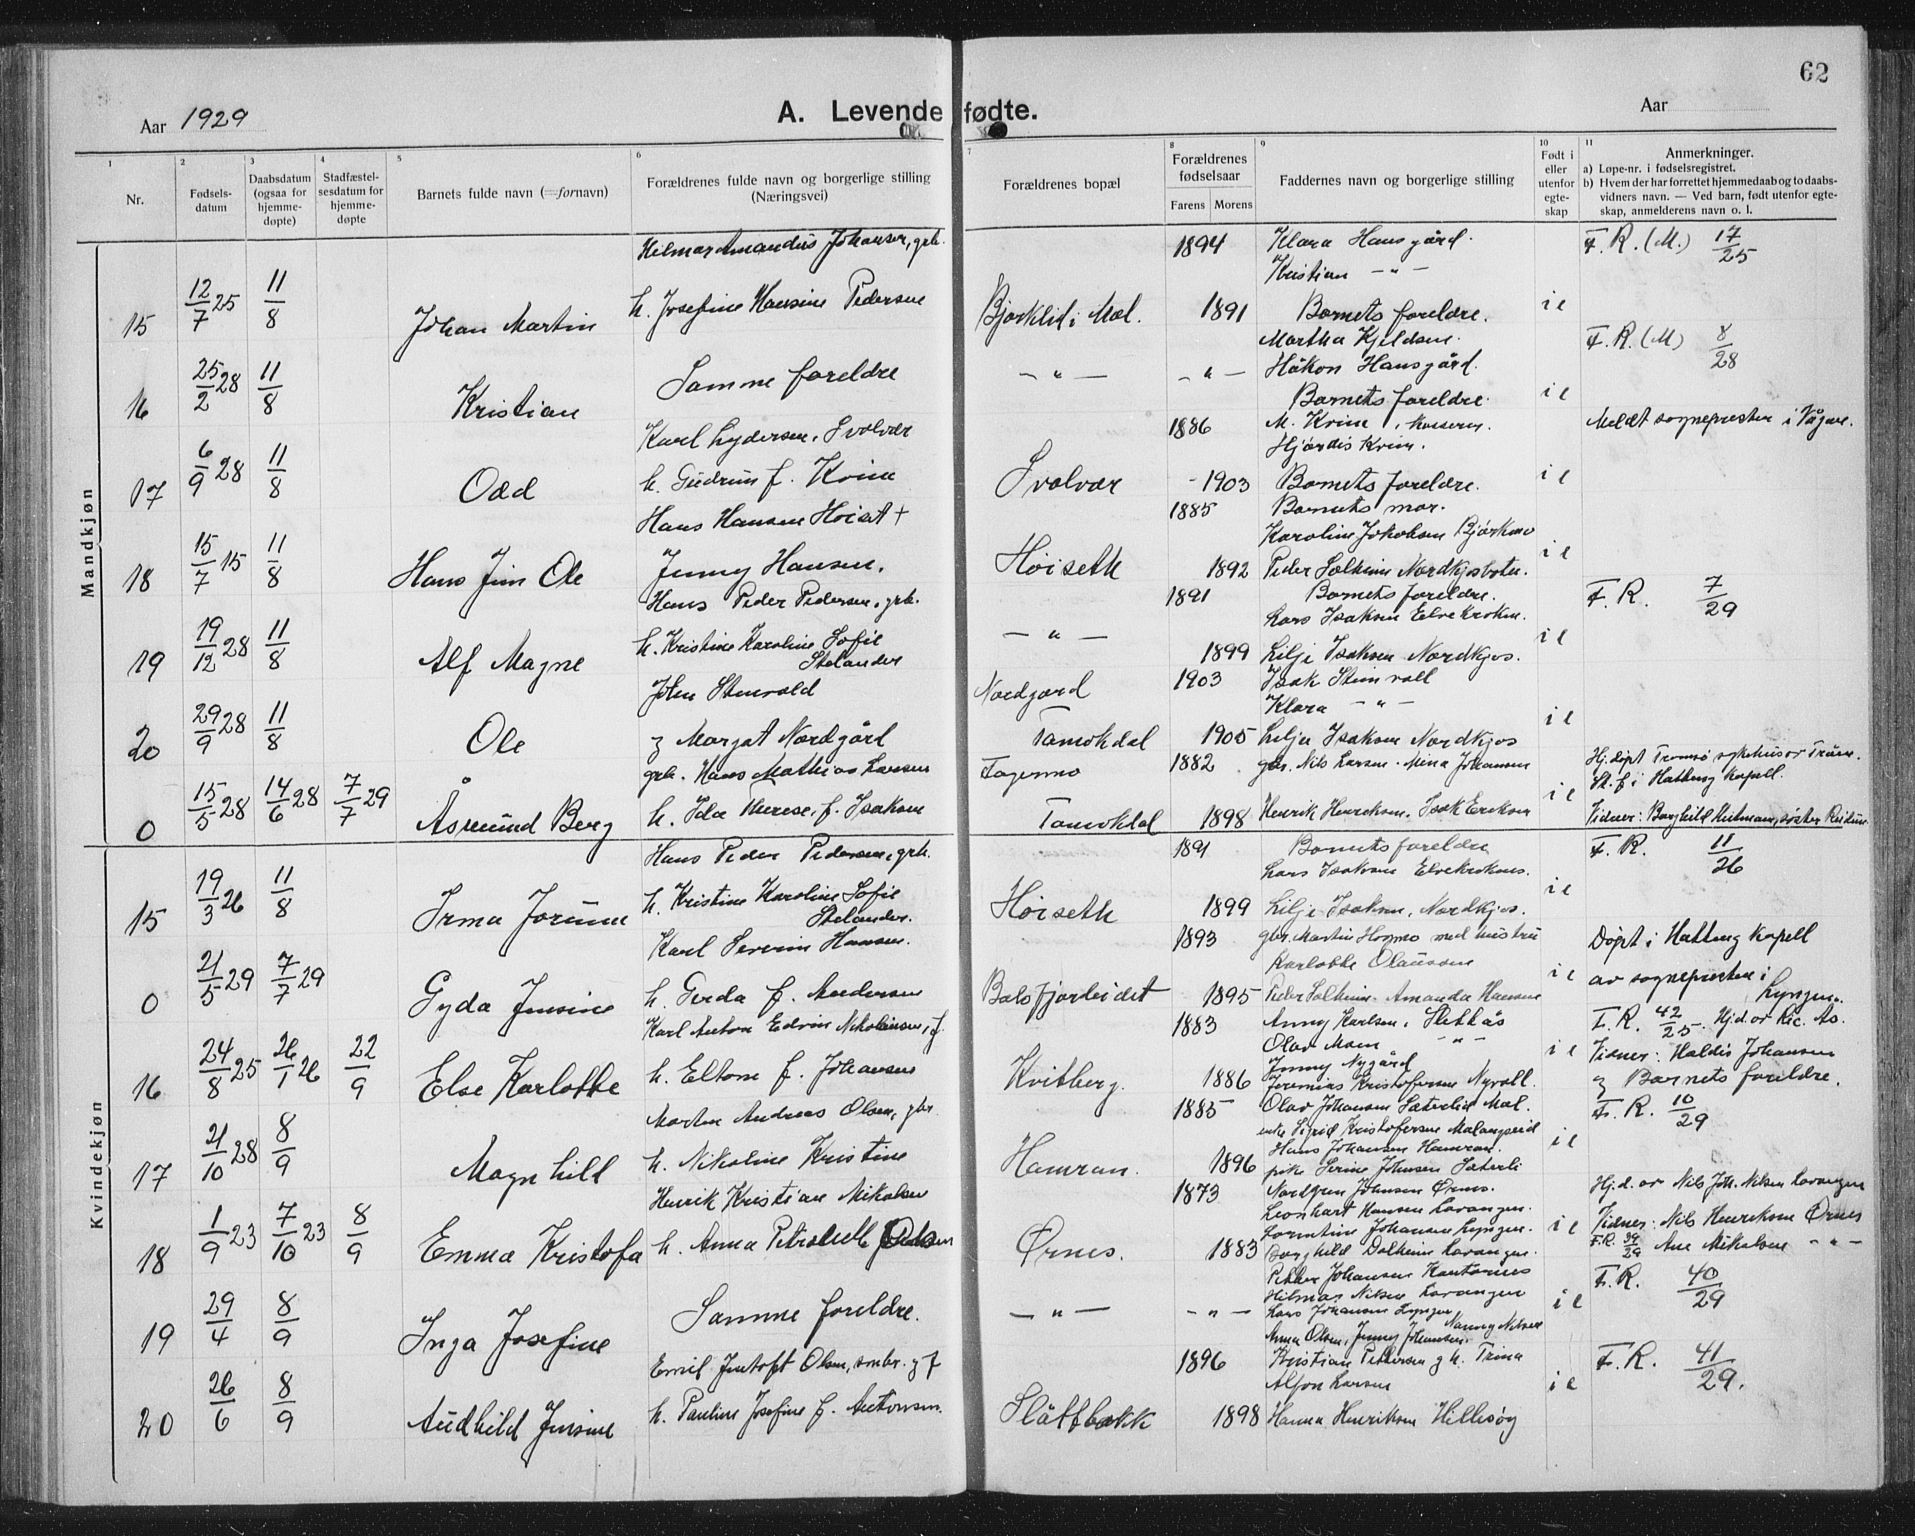 62
Aar 1929
A. Levende fødte.
Aar
1 2 3 4 5 6 7 8 9 10 11
Nr.
Fødsels-
datum
Daabsdatum
(ogsaa for
hjemme-
døpte)
Stadfæstel-
sesdatum for
hjemme-
døpte
Barnets fulde navn (=fornavn)
Forældrenes fulde navn og borgerlige stilling
(Næringsvei)
Forældrenes bopæl
Forældrenes
fødselsaar
Farens Morens
Faddernes navn og borgerlige stilling
Født i
eller
utenfor
egte-
skap
Anmerkninger.
a) Løpe-nr. i fødselsregistret.
b) Hvem der har forrettet hjemmedaab og to daabs-
vidners navn. — Ved barn, født utenfor egte-
skap, anmelderens navn o. l.
Mandkjøn
Hilmar Amandus Johansen, grb. 1894 Klara Hansgård. F. R. (M.) 17/25
Kristian — " —
15 12/7 25 11/8 Johan Martin h. Josefine Hansine Pedersen Bjørklid i Mål. 1891 Barnets foreldre. i e
Martha Kjeldsen. F. R. (M) 8/28
16 25/2 28 11/8 Kristian Samme foreldre — " — — " — Håkon Hansgård.
Barnets foreldre. i e
Karl Lydersen, Svolvær 1886 M. Kvim, Hjørdis Kvim. Meldt sognepresten i Vågan.
17 6/9 28 11/8 Odd h. Gudrun f. Kvim Svolvær 1903 Barnets foreldre. i e
Hans Hansen Høiset + 1885 Barnets mor.
Karoline Jakobsen Bjørkmo
18 15/7 15 11/8 Hans Jim Ole Jenny Hansen. Høiseth 1892 Peder Solheim Nordkjosboten. i e
Hans Peder Pedersen, grb. 1891 Barnets foreldre. F. R. 7/29
Lars Isaksen Elvekroken.
19 19/12 28 11/8 Alf Magne h. Kristine Karoline Sofie Stelander — " — 1899 Lilje Isaksen Nordkjos. i e
John Stenvold Nordgård 1903 Isak Steinvoll
Klara — " —
20 29/9 28 11/8 Ole og Margat Nordgård Tamokdal 1905 Lilje Isaksen Nordkjos i e
grb. Hans Mathias Larsen Fagermo 1882 gbr. Nils Larsen. Mina Johansen Hj. døpt Tromsø sykehus av
St. f. i Hatteng kapell.
0 15/5 28 14/6 28 7/7 29 Åsmund Berg h. Ida Therese, f. Isaksen Tamokdal 1898 Henrik Henriksen. Isak Eriksen i e Vidner: Borghild Heitman, søster
Kvindekjøn
Hans Peder Pedersen, grb. 1891 Barnets foreldre F. R. 11/26
Lars Isaksen Elvekroken.
15 19/3 26 11/8 Irma Jorunn h. Kristine Karoline Sofie Stelander. Høiseth 1899 Lilje Isaksen, Nordkjos. i e
Karl Severin Hansen. 1893 gbr. Martin Hogmo med hustru Døpt i Hatteng kapell
Karlotte Olaussen
0 21/5 29 7/7 29 Gyda Jensine h. Gerda f. Andersen Balsfjorbeidet 1895 Peder Solheim. Amanda Hansen i e av sognepresten i Lyngen.
Karl Anton Edvin Nikolaisen, f. 1883 Anny Karlsen, Slettås F. R. 42/25. Hj. d. av
Olav Moen — " —
16 24/8 25 26/1 26 22/9 Else Karlotte h. Eltone f. Johansen Kvitberg. 1886 Jenny Nygård i e Vidner: Haldis Johansen
Jeremias Kristofersen Nyvoll. og Barnets foreldre.
Morten Andreas Olsen, gbr. 1885 Olav Johansen Sæterlid Mål. F. R. 10/29
Sigrid Kristofersen Malangseid
17 21/10 28 8/9 Magnhild h. Nikoline Kristine Hamran. 1896 Hans Johansen Hamran. i e
pike Serine Johnsen Sæterli
Henrik Kristian Mikalsen 1873 Nordgren Johnsen Ørnes. Hj. d. av Nils Joh. Nilsen Lavangen
Leonhart Hansen Lavangen.
18 1/9 23 7/10 23 8/9 Emma Kristofa h. Anna Petronelle Ørnes. 1883 Lorentine Johansen Lyngen. i e Vidner: Nils Henriksen Ørnes
Borghild Dalheim Lavangen. F. R. 39/29 Ane Mikalsen — " —
Petter Johansen F. R. 40/29
Hilmar Nilsen Lavangen
19 29/4 8/9 Inga Josefine Samme foreldre. — " — — " — Lars Johansen Lyngen, Nanny Nilsen i e
Anna Olsen, Jenny Johansen.
Emil Jentoft Olsen, småbr. og f 1896 Kristian Pettersen og h. Trina F. R. 41/29.
Alfon Larsen
20 26/6 8/9 Audhild Jensine h. Pauline Josefine f. Antonsen. Slåttbakk 1898 Hanna Henriksen Hillesøy i e